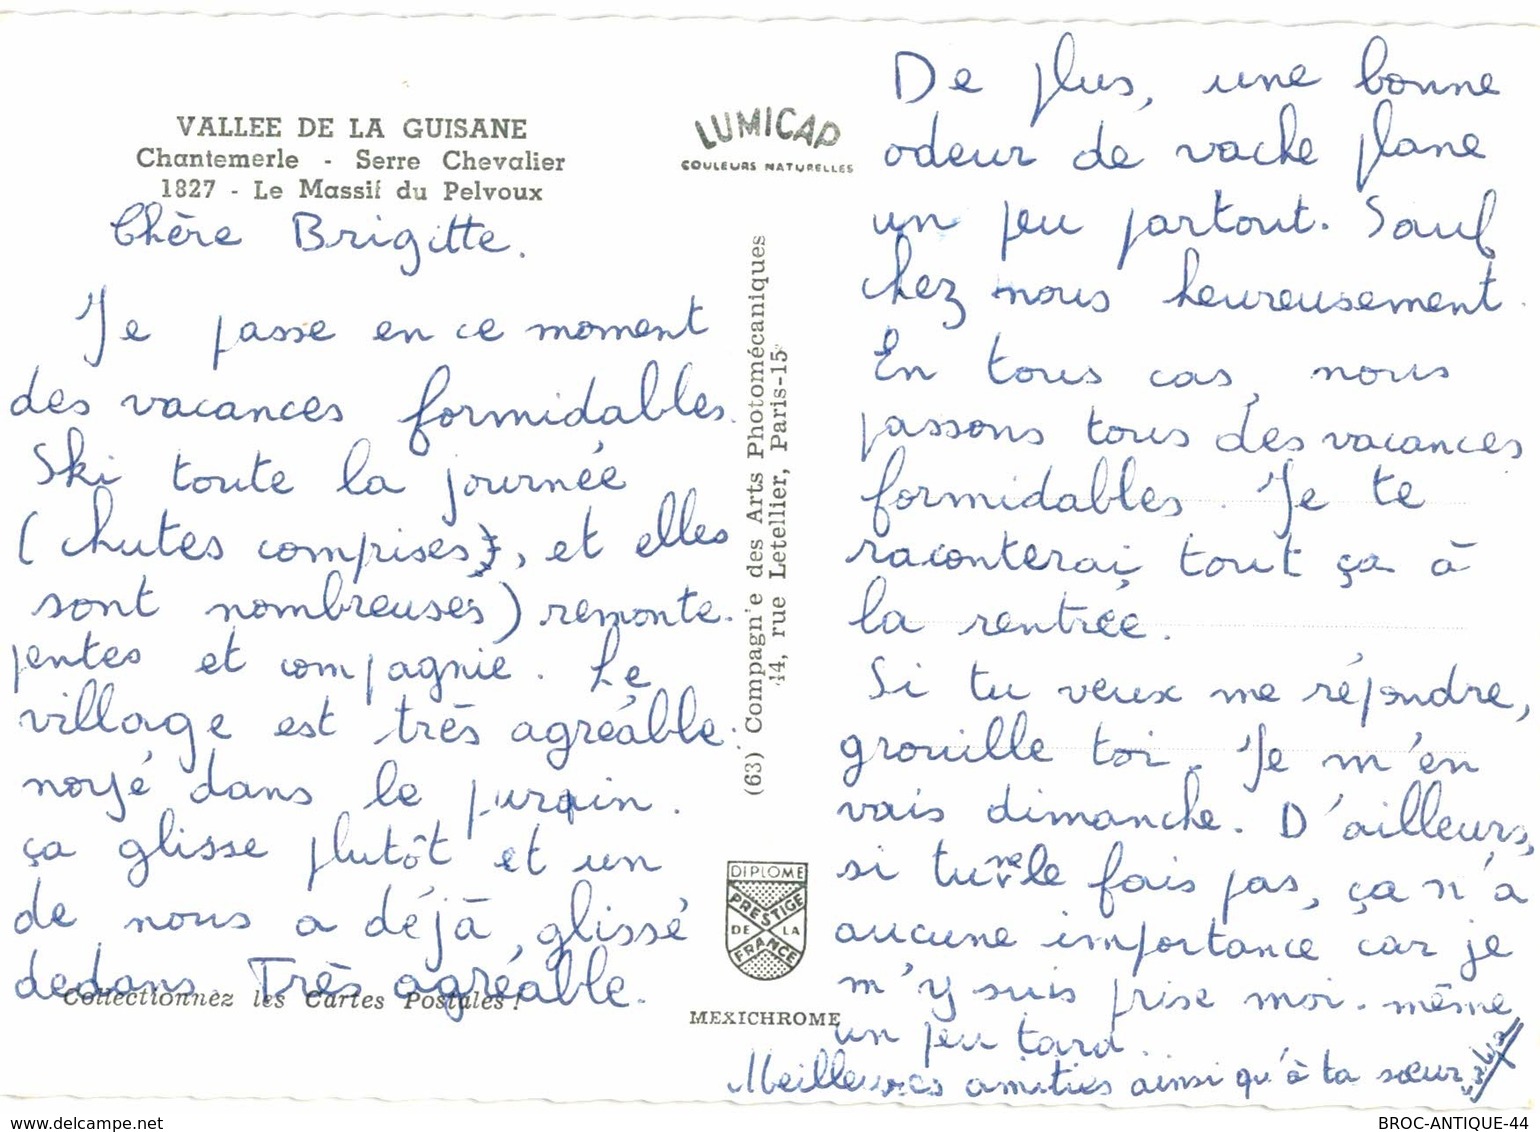 VALLEE DE LA GUISANE
Chantemerle - Serre Chevalier
1827 - Le Massif du Pelvoux
LUMICAP
COULEURS NATURELLES
Chère Brigitte.
Je passe en ce moment
des vacances formidables.
Ski toute la journée
(chutes comprises), et elles
sont nombreuses) remonte-
pentes et compagnie. Le
village est très agréable.
noyé dans le purain.
ça glisse plutôt et un
de nous a déjà, glissé
dedans Très agréable.
Collectionnez les Cartes Postales !
(63) Compagn'e des Arts Photomécaniques
44, rue Letellier, Paris-15
DIPLOME
PRESTIGE
DE LA
FRANCE
MEXICHROME
De plus, une bonne
odeur de vache plane
un peu partout. Sauf
chez nous heureusement.
En tous cas, nous
passons tous des vacances
formidables. Je te
raconterai tout ça à
la rentrée.
Si tu veux me répondre,
grouille toi. Je m'en
vais dimanche. D'ailleurs,
si tu ne le fais pas, ça n'a
aucune importance car je
m'y suis prise moi-même
un peu tard.
Meilleures amitiés ainsi qu'à ta sœur
www.delcampe.net
BROC-ANTIQUE-44